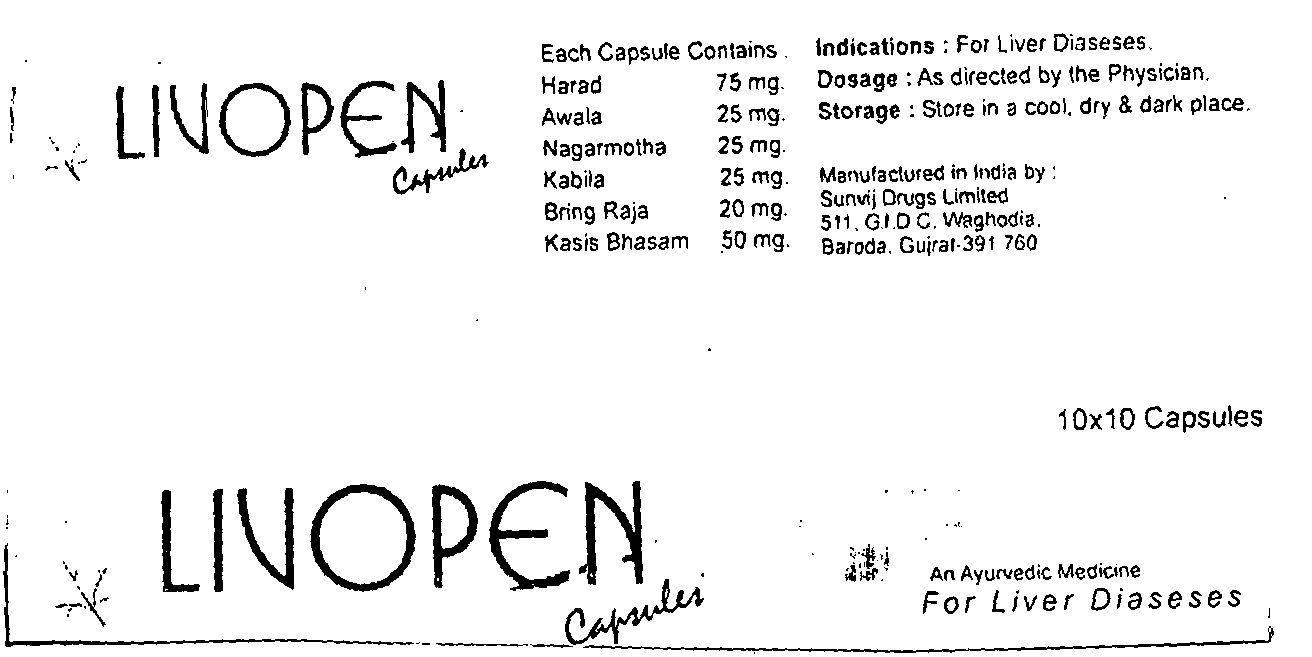 LIVOPEN
Capsules
Each Capsule Contains .
Harad 75 mg.
Awala 25 mg.
Nagarmotha 25 mg.
Kabila 25 mg.
Bring Raja 20 mg.
Kasis Bhasam 50 mg.
Indications : For Liver Diaseses.
Dosage : As directed by the Physician.
Storage : Store in a cool, dry & dark place.
Manufactured in India by :
Sunvij Drugs Limited
511, G.I.D C. Waghodia,
Baroda, Gujrat-391 760
10x10 Capsules
LIVOPEN
Capsules
An Ayurvedic Medicine
For Liver Diaseses